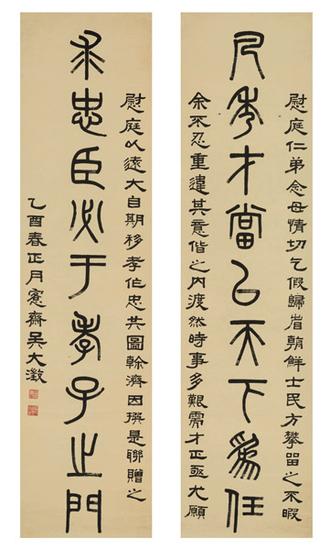 慰庭仁弟念母情切乞假歸省朝鮮士民方攀留之不暇
凡秀才當以天下為任
余不忍重違其意偕之內渡然時事多艱需才正亟尤願
慰庭以遠大自期移孝作忠共圖幹濟因撰是聯贈之
求忠臣必于孝子之門
乙酉春正月愙齋吳大澂